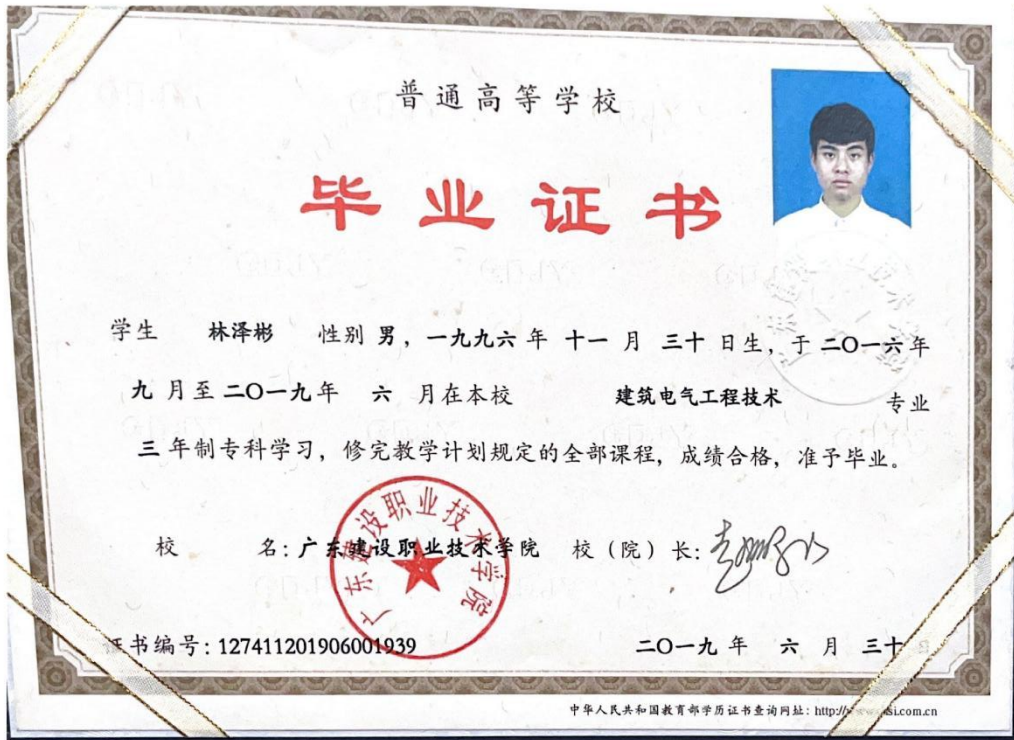 普通高等学校
毕业证书
学生 林泽彬 性别 男，一九九六 年 十一 月 三十 日生，于 二〇一六 年
九 月至 二〇一九 年 六 月在本校 建筑电气工程技术 专业
三 年制专科学习，修完教学计划规定的全部课程，成绩合格，准予毕业。
校 名：广东建设职业技术学院 校（院）长：
广东建设职业技术学院
证书编号：127411201906001939 二〇一九 年 六 月 三十
中华人民共和国教育部学历证书查询网址：http://